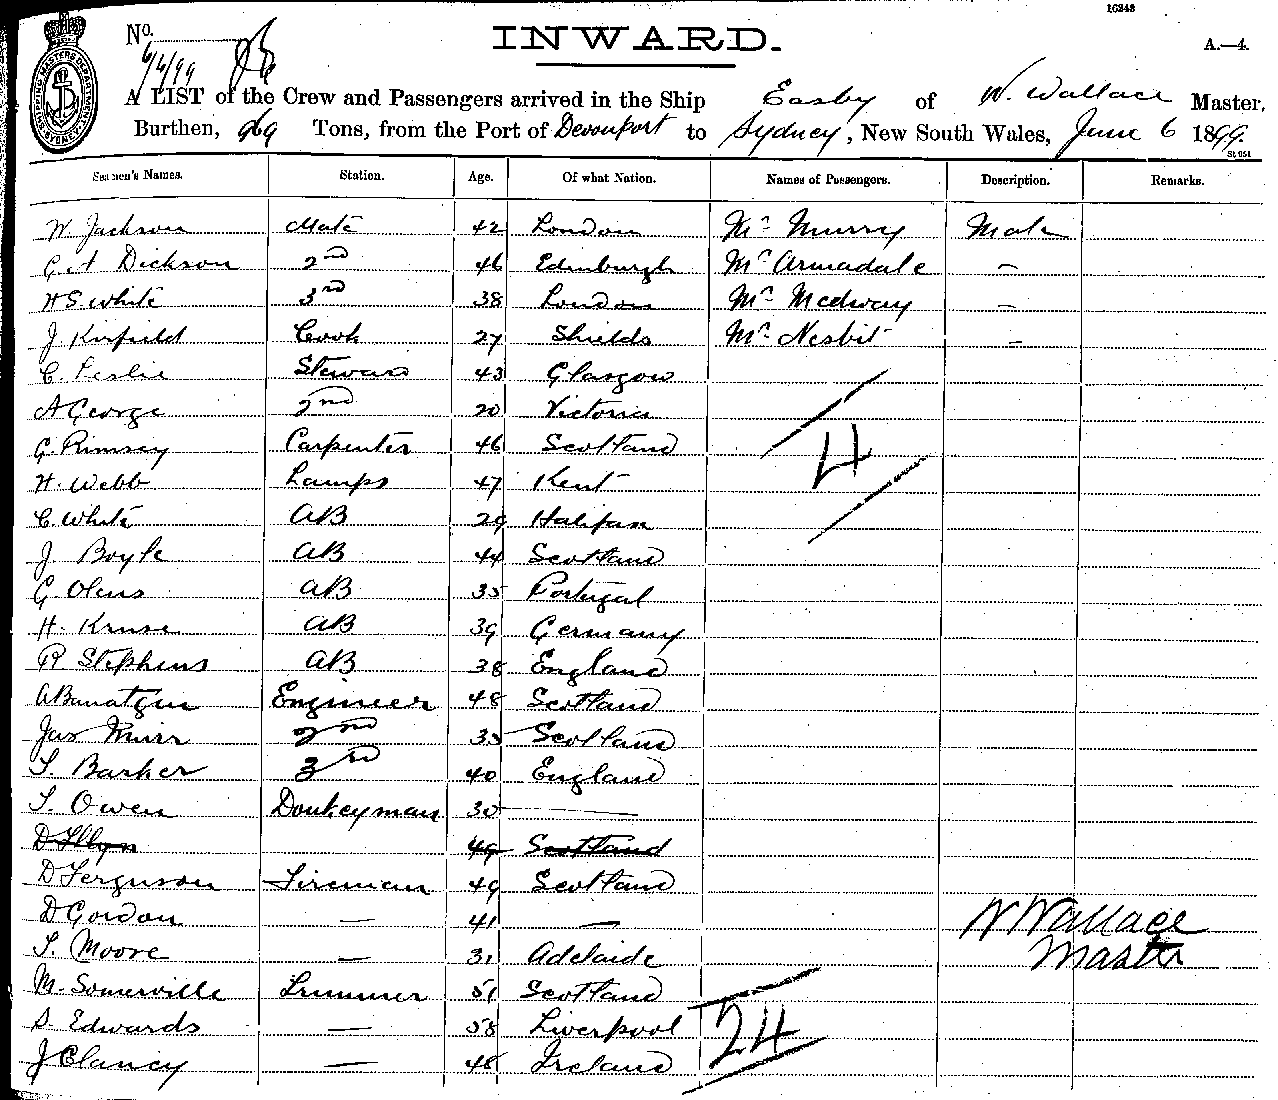 16248
No. 6/6/99
INWARD.
A.—4.
A LIST of the Crew and Passengers arrived in the Ship Easby of W. Wallace Master,
Burthen, 969 Tons, from the Port of Devonport to Sydney, New South Wales, June 6 1899.
St 951
Seamen's Names. Station. Age. Of what Nation. Names of Passengers. Description. Remarks.
W. Jackson Mate 42 London Mr Murry Male
G. A Dickson 2nd 46 Edinburgh Mr Armadale —
H S. White 3rd 38 London Mr Medway —
J Kirfield Cook 27 Shields Mr Nesbit —
C. Leslie Steward 43 Glasgow
A George 2nd 20 Victoria
G. Rimsey Carpenter 46 Scotland
4
H. Webb Lamps 47 Kent
C. White AB 29 Halifax
J Boyle AB 44 Scotland
G. Olens AB 35 Portugal
H. Kruse AB 39 Germany
R Stephens AB 38 England
A Engineer 48 Scotland
Jas Muir 2nd 35 Scotland
T. Barker 3rd 40 England
T. Owen Donkeyman 30 —
D 49 Scotland
D Ferguson Fireman 49 Scotland
D Gordon — 41 — W Wallace
T. Moore — 31 Adelaide Master
M. Somerville Trimmer 51 Scotland
S. Edwards — 58 Liverpool 24
J Clancy — 48 Ireland